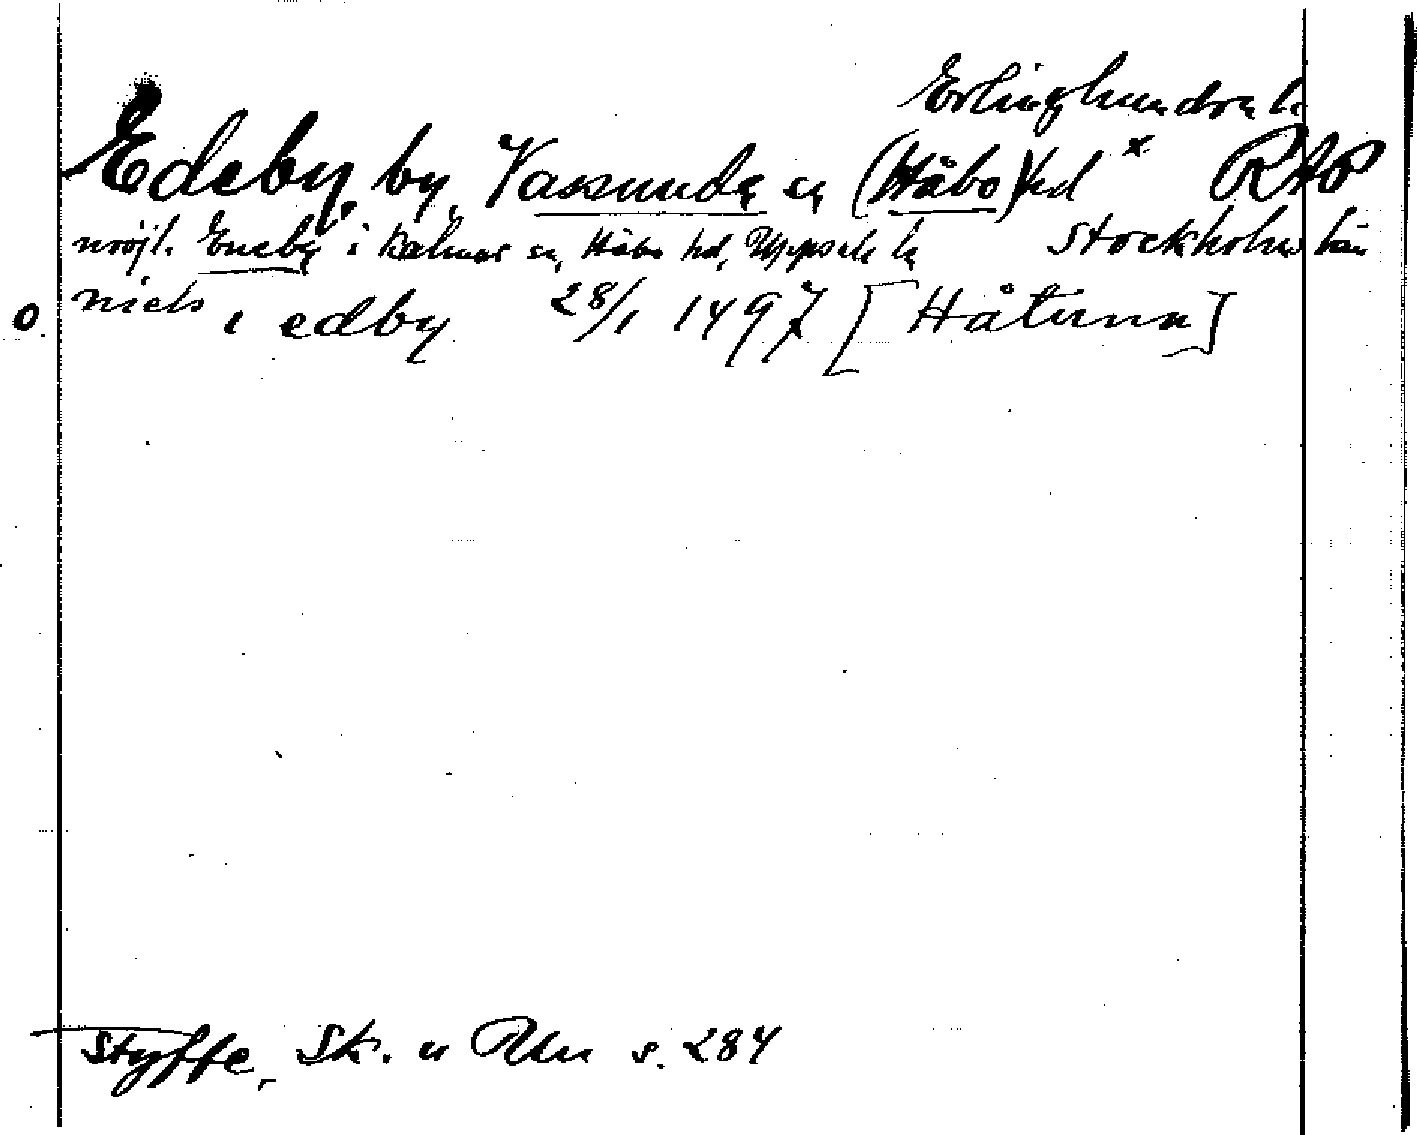 Erlinghundra h
Edeby, by, Vassunda sn (Håbo) hd x RAP
möjl. Eneby i Kalmar sn, Håbo hd, Uppsala l. Stockholms län
o niels i edby 28/1 1497 [Håtuna]
Styffe, Sk. u Un s. 284